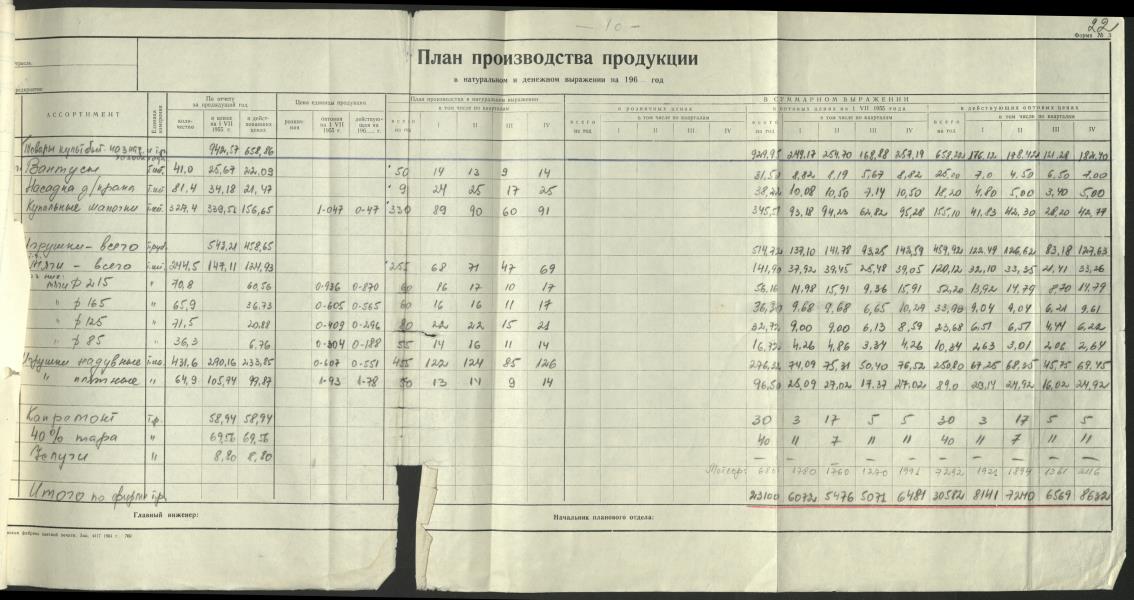 — 10 —
22
Форма № 3
План производства продукции
в натуральном и денежном выражении на 196 год
АССОРТИМЕНТ
Единица измерения
По отчету за предыдущий год
количество
в ценах на 1 VII 1955 г.
в действовавших ценах
Цена единицы продукции
розничная
оптовая на 1 VII 1955 г.
действующая на 196 г.
План производства в натуральном выражении
всего на год
в том числе по кварталам
I II III IV
В СУММАРНОМ ВЫРАЖЕНИИ
в розничных ценах
всего на год
в том числе по кварталам
I II III IV
в оптовых ценах на 1 VII 1955 года
всего на год
в том числе по кварталам
I II III IV
в действующих оптовых ценах
всего на год
в том числе по кварталам
I II III IV
Товары культбыт. назнач. 942,57 658,86 929,95 249,17 254,70 168,88 257,19 658,22 176,12 178,42 121,28 182,40
Вантузы т.шт. 41,0 25,67 22,09 50 14 13 9 14 31,50 8,82 8,19 5,67 8,82 7,0 4,50 6,50 7,00
Насадка д/крана т.шт. 81,4 34,18 21,47 9 24 25 17 25 38,22 10,08 10,50 7,14 10,50 18,20 4,80 5,00 3,40 5,00
Купальные шапочки т.шт. 327,4 339,51 156,65 1-047 0-47 330 89 90 60 91 345,51 93,18 94,23 62,82 95,28 155,10 41,83 42,30 28,20 42,77
Игрушки - всего т.руб. 543,21 458,65 514,72 137,10 141,78 93,25 142,59 459,92 122,49 126,62 83,18 127,63
Мячи - всего т.шт. 244,5 147,11 124,93 255 68 71 47 69 141,90 37,92 39,45 25,48 39,05 120,12 32,10 33,35 21,41 33,26
мячи ф 215 70,8 60,56 0-936 0-870 60 16 17 10 17 56,16 14,98 15,91 9,36 15,91 52,20 13,92 14,79 8,70 14,79
" ф 165 " 65,9 36,73 0-605 0-565 60 16 16 11 17 36,30 9,68 9,68 6,65 10,29 33,90 9,04 9,04 6,21 9,61
" ф 125 " 71,5 20,88 0-409 0-296 80 22 22 15 21 32,72 9,00 9,00 6,13 8,59 23,68 6,51 6,51 4,44 6,22
" ф 85 " 36,3 6,76 0-304 0-188 55 14 16 11 14 16,72 4,26 4,86 3,34 4,26 10,34 2,63 3,01 2,06 2,64
Игрушки надувные т.шт. 431,6 290,16 233,85 0-607 0-551 455 122 124 85 126 276,32 74,09 75,31 50,40 76,52 250,80 67,25 68,35 45,75 69,45
" " 64,9 105,94 99,87 1-93 1-78 50 13 14 9 14 96,50 25,09 27,02 17,37 27,02 89,0 23,14 24,92 16,02 24,92
Капремонт т.р. 58,94 58,94 30 3 17 5 5 30 3 17 5 5
40% тара " 69,56 69,56 40 11 7 11 11 40 11 7 11 11
Услуги " 8,80 8,80 — — — — — — — — — —
1780 1760 1270 1991 7292 1921 1894 1361 2116
Итого по фабрике т.р. 23100 6072 5476 5071 6481 30582 8141 7240 6569 8632
Главный инженер:
Начальник планового отдела: